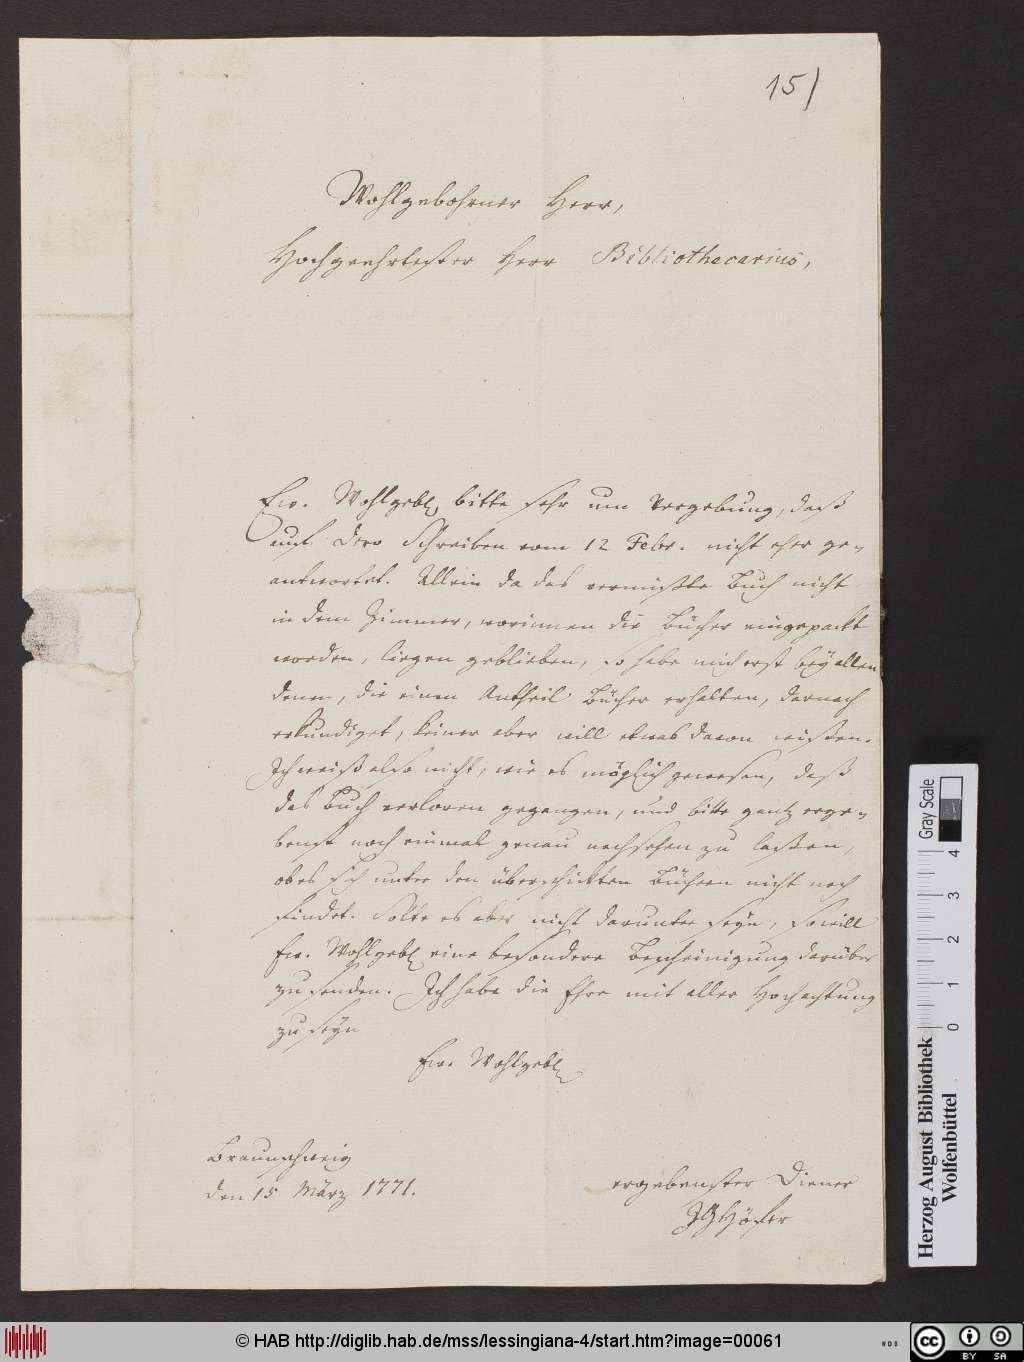 15)
Wohlgebohrner Herr,
Hochgeehrtester Herr Bibliothecarius,
Ew. Wohlgeb. bitte sehr um Vergebung, daß
auf Dero Schreiben vom 12 Febr. nicht eher ge-
antwortet. Allein da das vermißte Buch nicht
in dem Zimmer, worinnen die Bücher eingepackt
worden, liegen geblieben, so habe mich erst bey allen
denen, die einen Antheil Bücher erhalten, darnach
erkundiget, keiner aber will etwas davon wißen.
Ich weiß also nicht, wie es möglich gewesen, daß
das Buch verloren gegangen, und bitte gantz erge-
benst noch einmal genau nachsehen zu laßen,
ob es sich unter den überschickten Büchern nicht noch
findet. Solte es aber nicht darunter seyn, so will
Ew. Wohlgeb. eine besondere Bescheinigung darüber
zu senden. Ich habe die Ehre mit aller Hochachtung
zu seyn
Ew. Wohlgeb.
Braunschweig
den 15 März 1771.
ergebenster Diener
JGHöfer
Herzog August Bibliothek
Wolfenbüttel
0 1 2 3 4
Gray Scale
© HAB http://diglib.hab.de/mss/lessingiana-4/start.htm?image=00061
WDB
cc BY SA